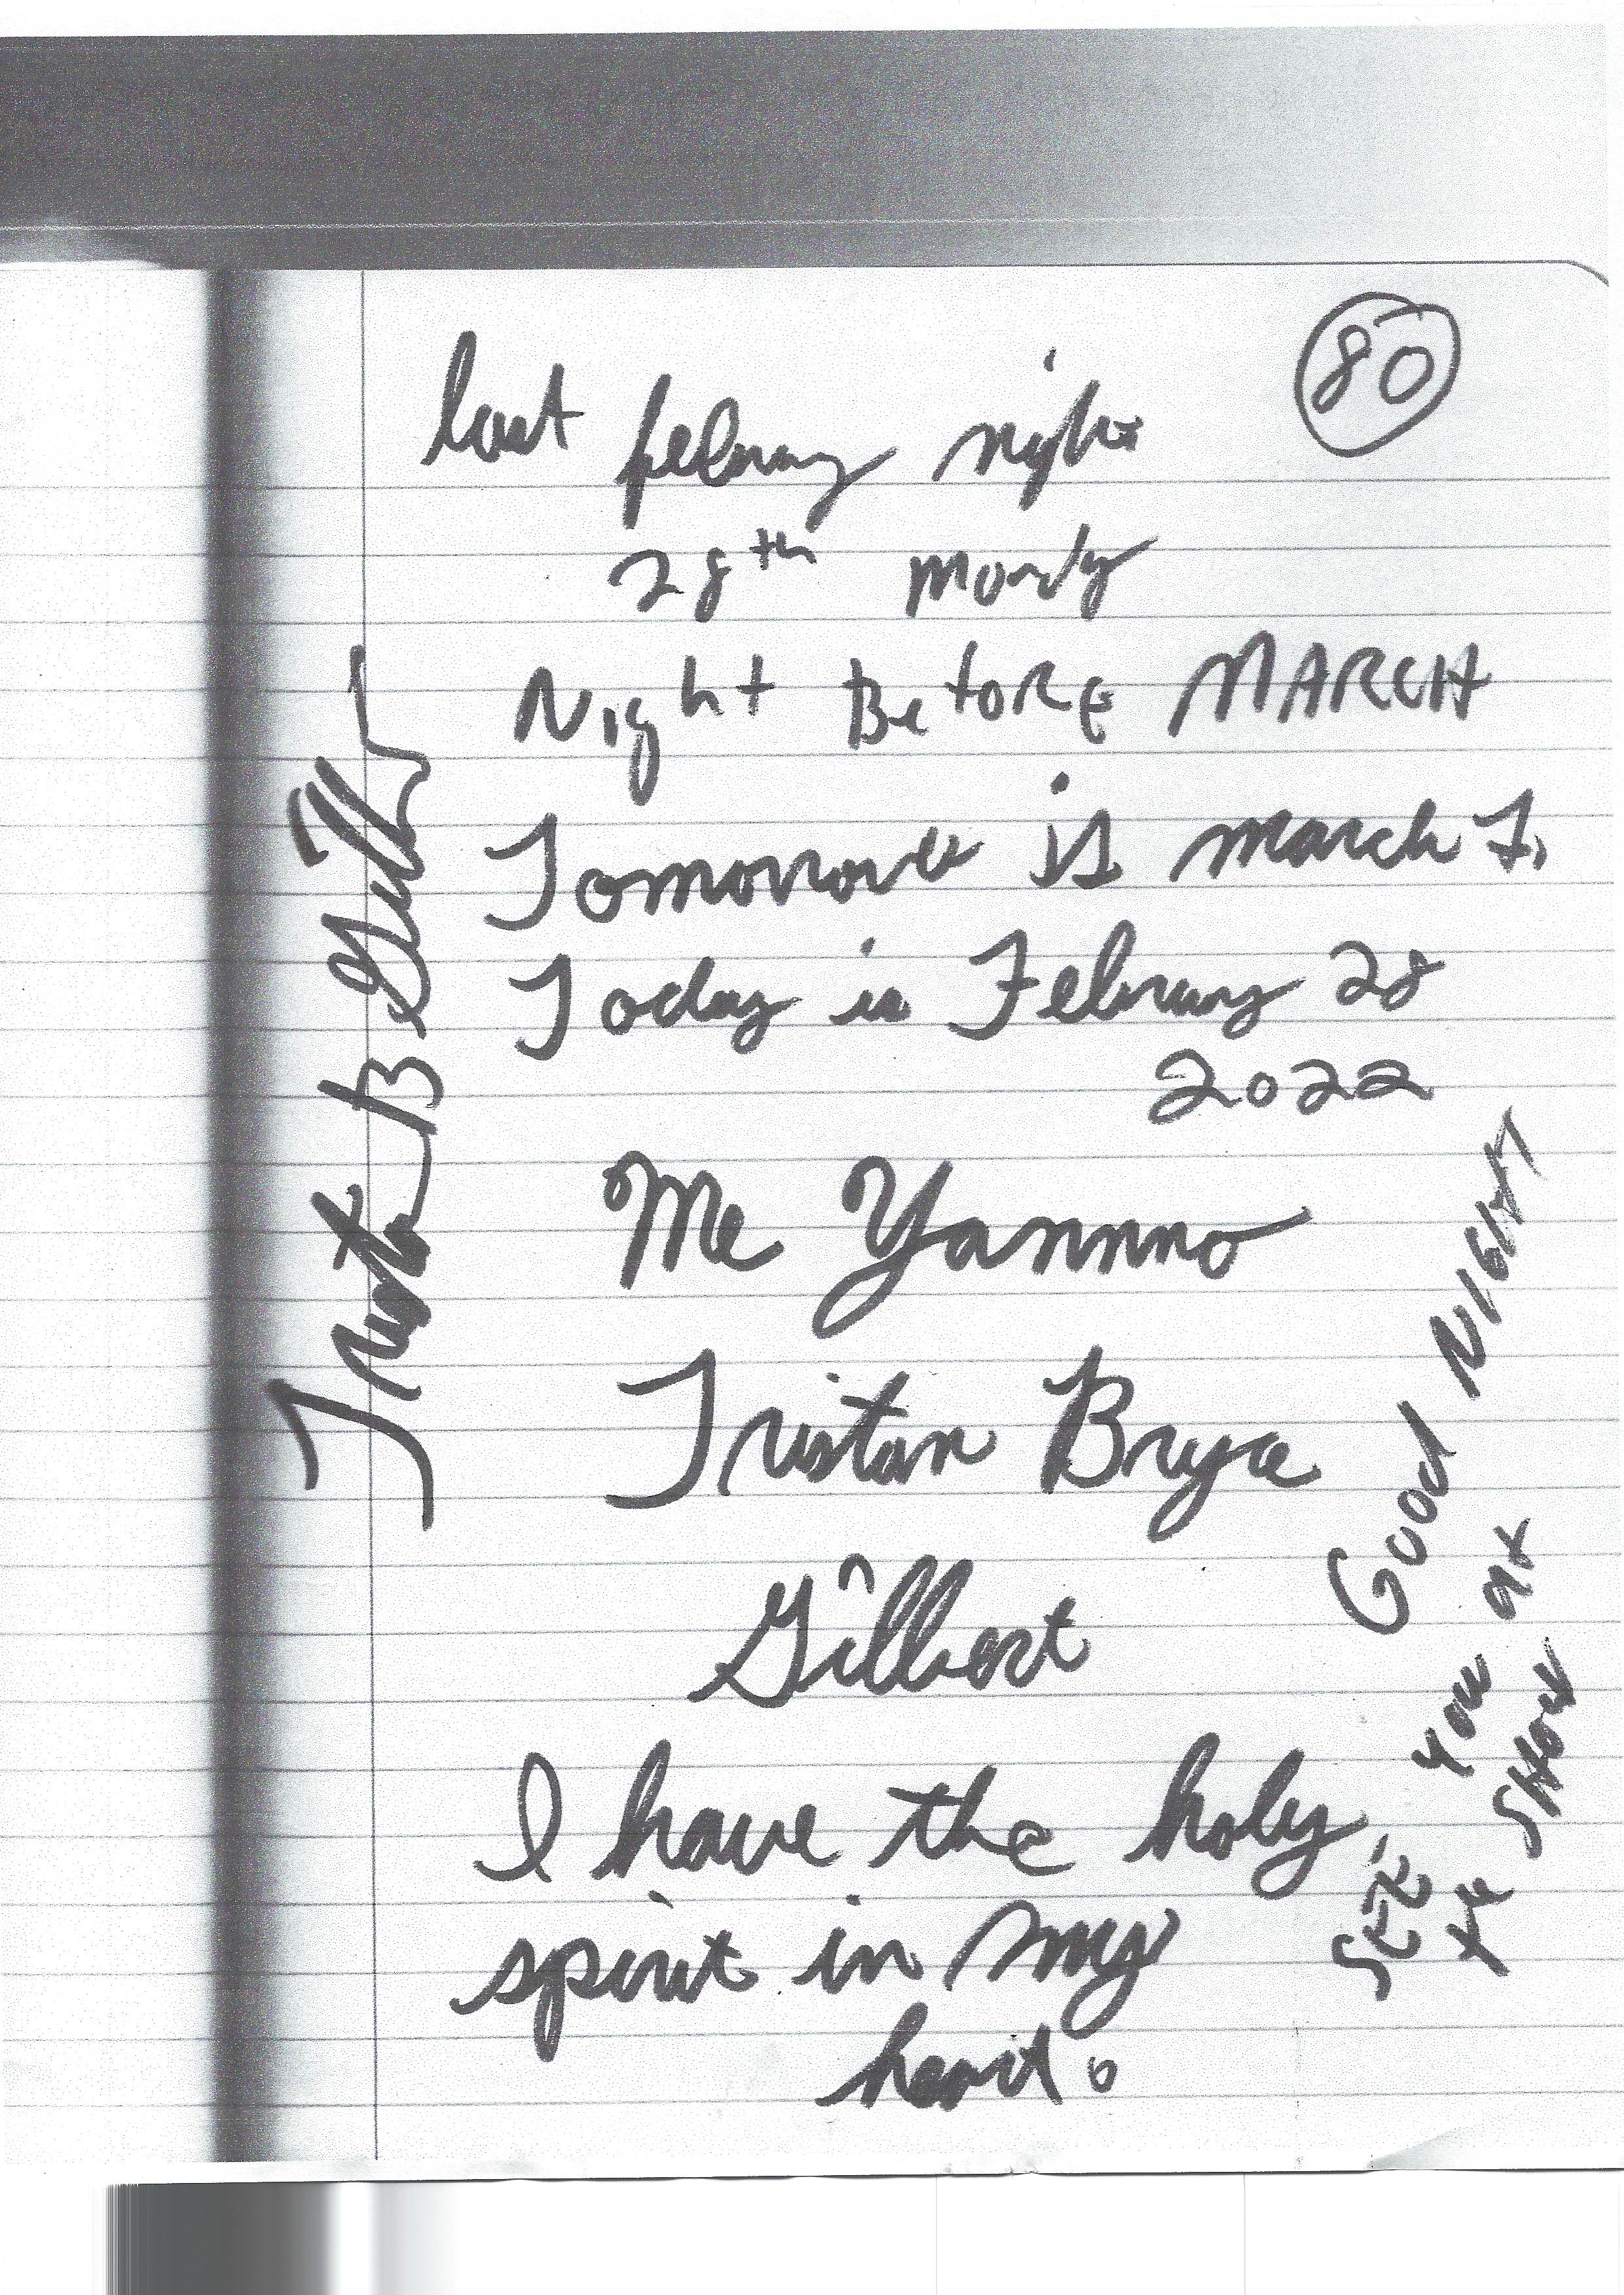 80
last february night
28th monday
Night Before MARCH
Tomorrow is march 1,
Today is February 28
2022
Me Yannno
Tristan Bryce
Gilbert
I have the holy
spirit in my
heart.
Tristan B Gilbert
GOOD NIGHT
SEE you at
the SHOW